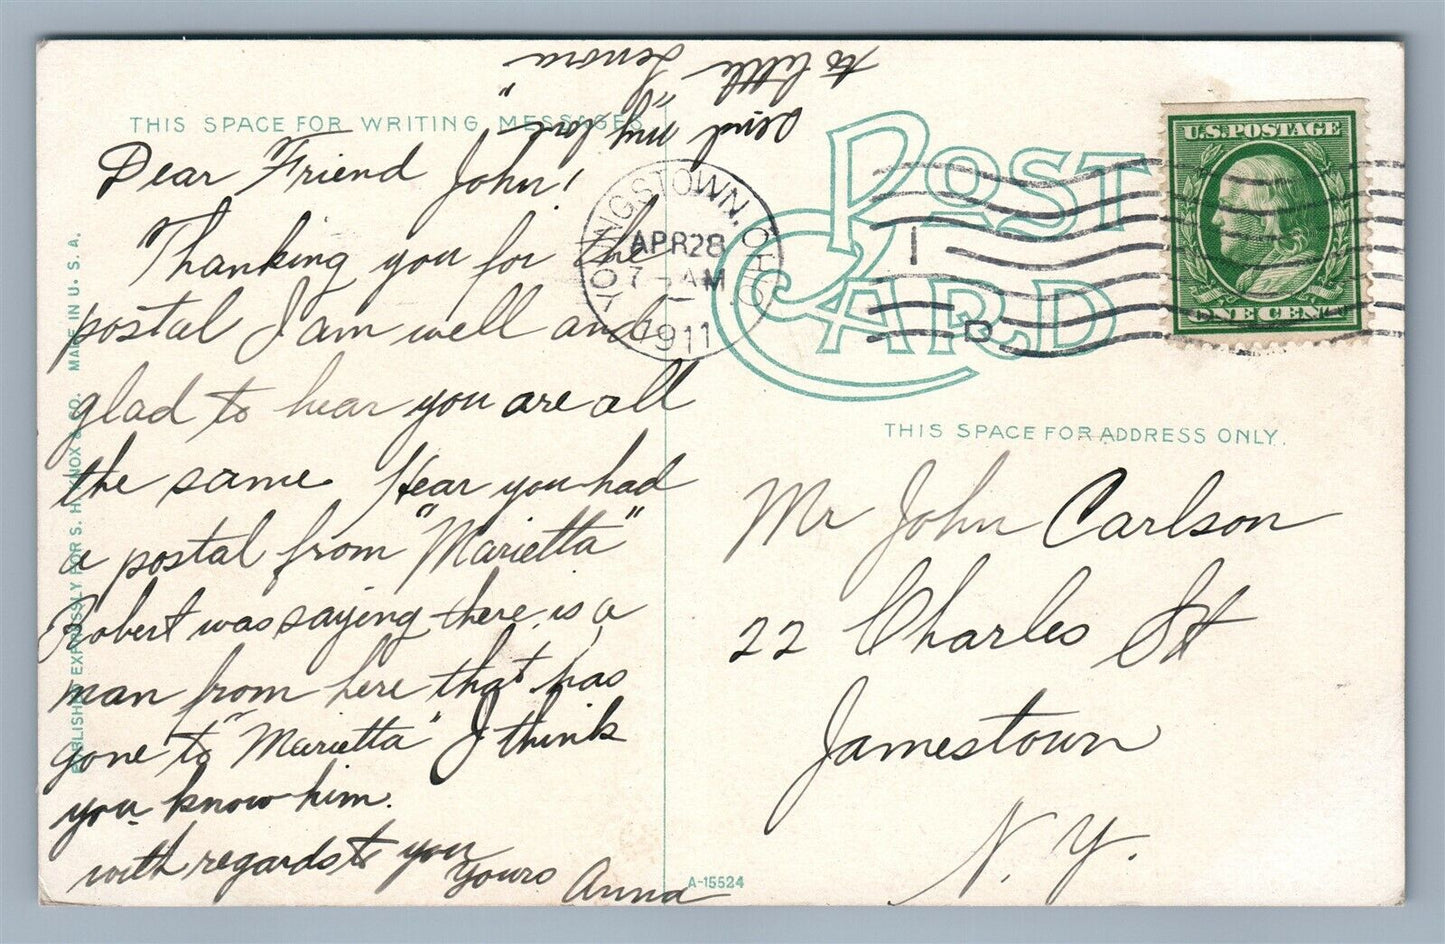 THIS SPACE FOR WRITING MESSAGES
Dear Friend John!
Thanking you for the
postal I am well and
glad to hear you are all
the same. Hear you had
a postal from "Marietta"
Robert was saying there is a
man from here that has
gone to "Marietta" I think
you know him.
with regards to you
Yours Anna
send my love
to little "Lenora"
PUBLISHED EXPRESSLY FOR S. H. KNOX & CO. MADE IN U. S. A.
POST
CARD
YOUNGSTOWN, OHIO
APR 28
7 - AM
1911
1
D
U.S. POSTAGE
ONE CENT
THIS SPACE FOR ADDRESS ONLY.
Mr John Carlson
22 Charles St
Jamestown
N. Y.
A-15524